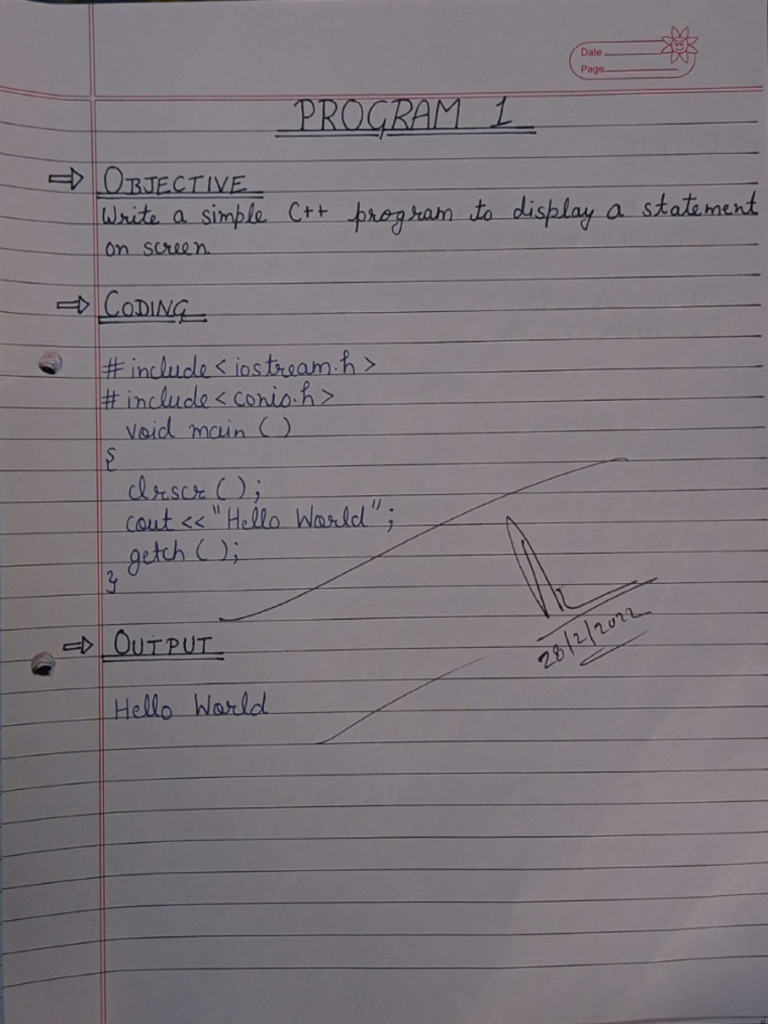 Date
Page
PROGRAM 1
⇒ OBJECTIVE
Write a simple C++ program to display a statement
on screen.
⇒ CODING
# include < iostream.h >
# include < conio.h >
void main ( )
{
clrscr ( );
cout << "Hello World";
getch ( );
}
⇒ OUTPUT
28/2/2022
Hello World